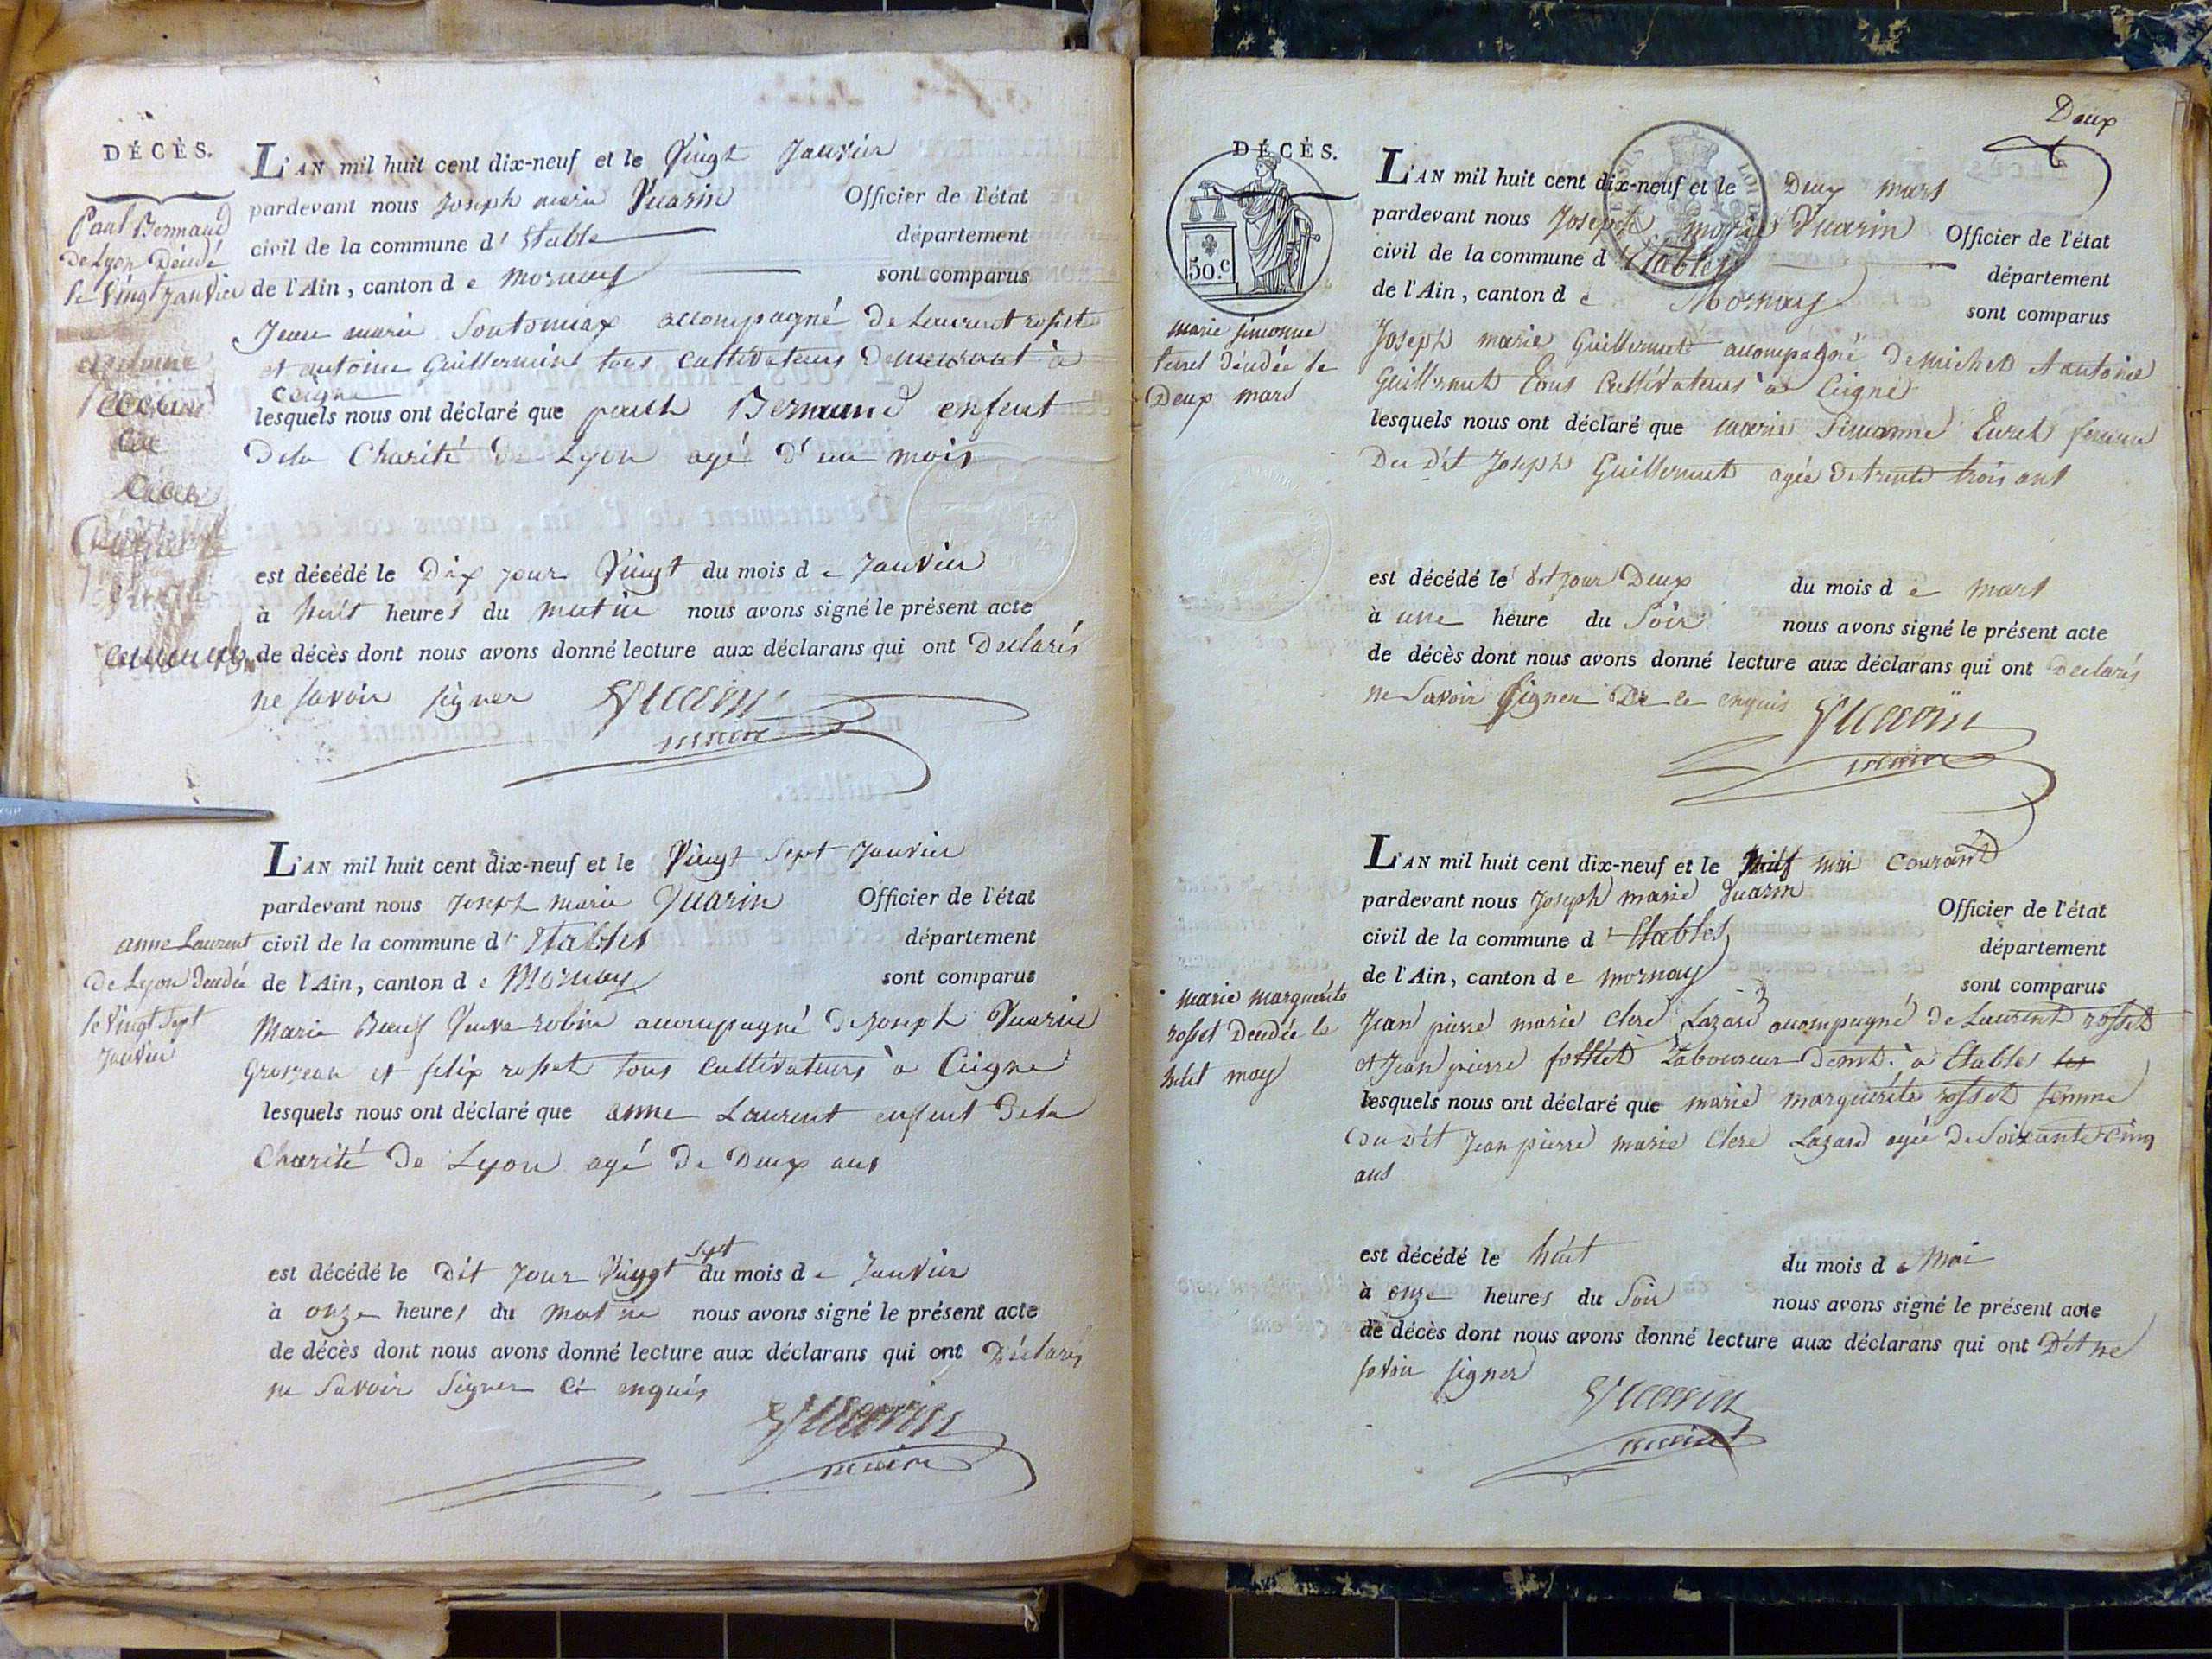 DÉCÈS.
Paul Bernaud
de Lyon Décédé
le vingt Janvier
L'AN mil huit cent dix-neuf et le Vingt Janvier
pardevant nous Joseph marie Vuarin Officier de l'état
civil de la commune d' Etable département
de l'Ain, canton de Mornay sont comparus
Jean marie accompagné de Laurent rosset
et antoine Guillermin tous cultivateurs demeurant à
Ceigne
lesquels nous ont déclaré que Bernaud enfent
Dela Charité de Lyon agé d'un mois
est décédé le Dix jour Vingt du mois de Janvier
à huit heures du matin nous avons signé le présent acte
de décès dont nous avons donné lecture aux déclarans qui ont Declarés
ne savoir signer Vuarin
anne Laurent
de Lyon Décédée
le Vingt Sept
Janvier
L'AN mil huit cent dix-neuf et le Vingt Sept Janvier
pardevant nous Joseph marie Vuarin Officier de l'état
civil de la commune d' Etables département
de l'Ain, canton de Mornay sont comparus
Marie Bœuf Veuve robin accompagné de Joseph Vuarin
Grosjean et felix rosset tous cultivateurs à Ceigne
lesquels nous ont déclaré que anne Laurent enfent Dela
Charité de Lyon agé de Deux ans
Sept
est décédé le Dit Jour Vingt du mois de Janvier
à onze heures du matin nous avons signé le présent acte
de décès dont nous avons donné lecture aux déclarans qui ont Déclarés
ne Savoir Signer enquis
Vuarin
Deux
DÉCÈS.
50.c
marie simonne
Décédée le
Deux mars
L'AN mil huit cent dix-neuf et le Deux mars
pardevant nous Joseph marie Vuarin Officier de l'état
civil de la commune d' Etables département
de l'Ain, canton de Mornay sont comparus
Joseph marie Guillermet accompagné de michel et antoine
Guillermet tous Cultivateurs à Ceigne
lesquels nous ont déclaré que marie Simonne femme
Du Dit Joseph Guillermet agée de trente trois ans
est décédé le dit jour Deux du mois de mars
à une heure du Soir nous avons signé le présent acte
de décès dont nous avons donné lecture aux déclarans qui ont Declarés
ne Savoir Signer De ce enquis
Vuarin
marie marguérite
rosset Decédée le
huit may
L'AN mil huit cent dix-neuf et le mai Courant
pardevant nous Joseph marie Vuarin Officier de l'état
civil de la commune d' Etables département
de l'Ain, canton de mornay sont comparus
Jean pierre marie Clere Lazard accompagné de Laurent rosset
et Jean pierre Laboureur Demt. à Etables
lesquels nous ont déclaré que marie marguérite rosset femme
Du Dit Jean pierre marie Clere Lazard agée De Soixante Cinq
ans
est décédé le huit du mois de Mai
à onze heures du Soir nous avons signé le présent acte
de décès dont nous avons donné lecture aux déclarans qui ont Dit ne
savoir signer
Vuarin